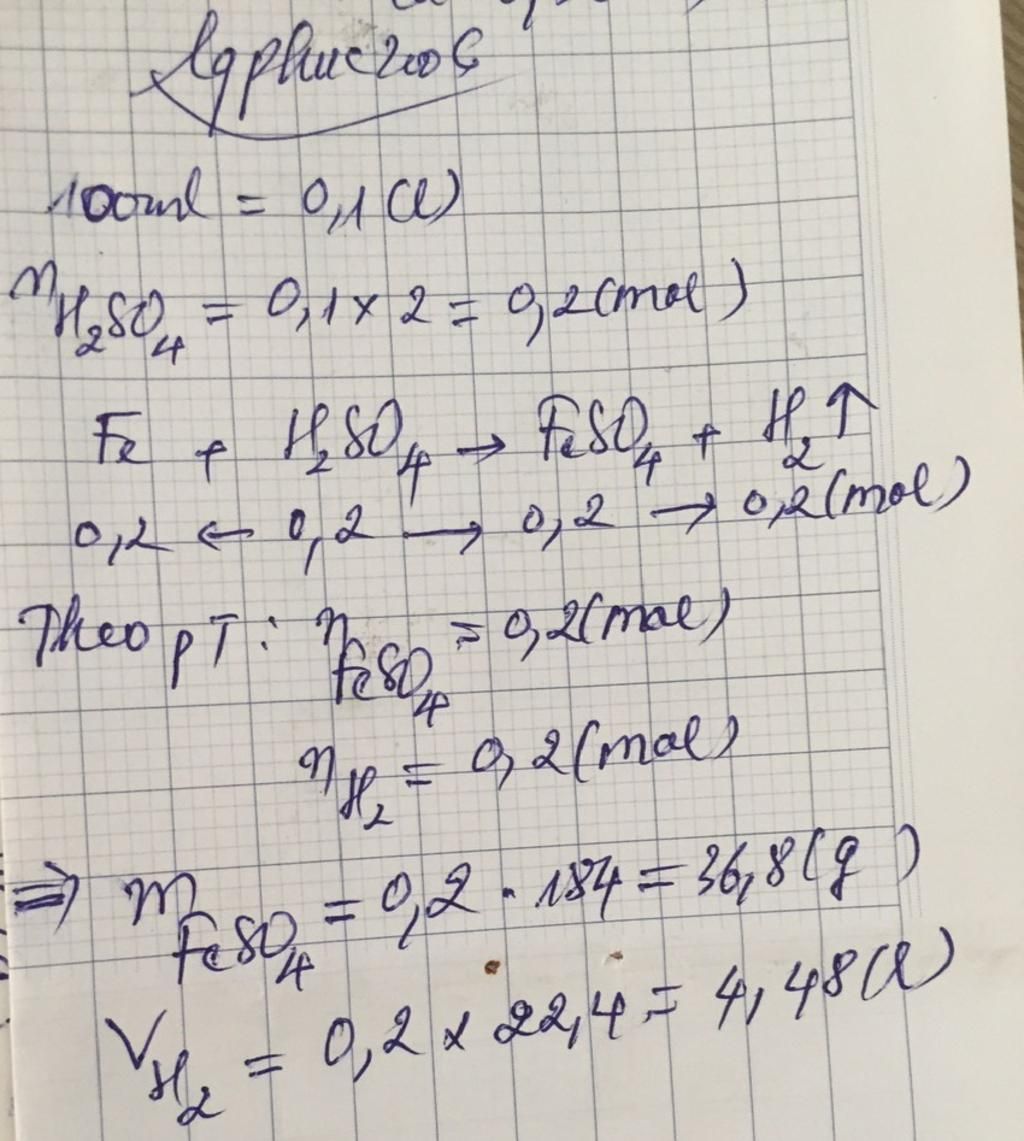 lgphuc2706
100ml = 0,1 (l)
nH₂SO₄ = 0,1 x 2 = 0,2 (mol)
Fe + H₂SO₄ → FeSO₄ + H₂↑
0,2 ← 0,2 → 0,2 → 0,2 (mol)
Theo pT: nFeSO₄ = 0,2 (mol)
nH₂ = 0,2 (mol)
⇒ mFeSO₄ = 0,2 . 184 = 36,8 (g)
VH₂ = 0,2 x 22,4 = 4,48 (l)